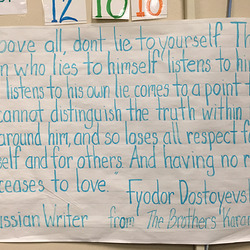 12 10 10
bove all, dont lie to yourself. Th
n who lies to himself listens to hi
listens to his own lie comes to a point
cannot distinguish the truth within
around him, and so loses all respect f
self and for others. And having no r
ceases to love." Fyodor Dostoyevs
ussian Writer from The Brothers Karam